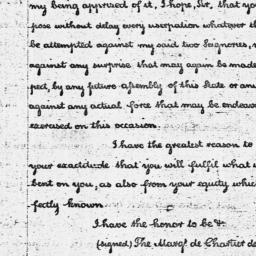 my being apprised of it, I hope, Sir, that you
pose without delay every usurpation whatever th
be attempted against my said two Seignories,
against any surprise that may again be made
pect, by any future assembly of this State or any
against any actual force that may be endeavo
exercised on this occasion.
I have the greatest reason to
your exactitude that you will fulfil what
bent on you, as also from your equity which
fectly known.
I have the honor to be &
(signed) The Marqs de Chartier de